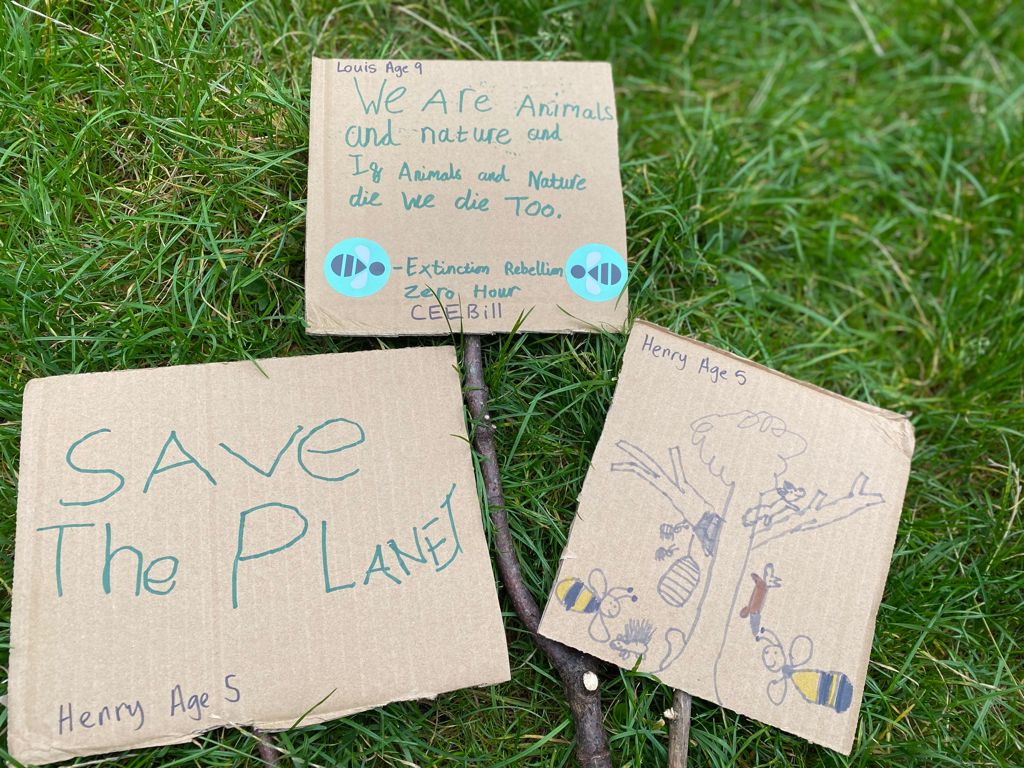 Louis Age 9
We Are Animals
and nature and
If Animals and Nature
die we die Too.
-Extinction Rebellion
Zero Hour
CEEBill
Save
The Planet
Henry Age 5
Henry Age 5